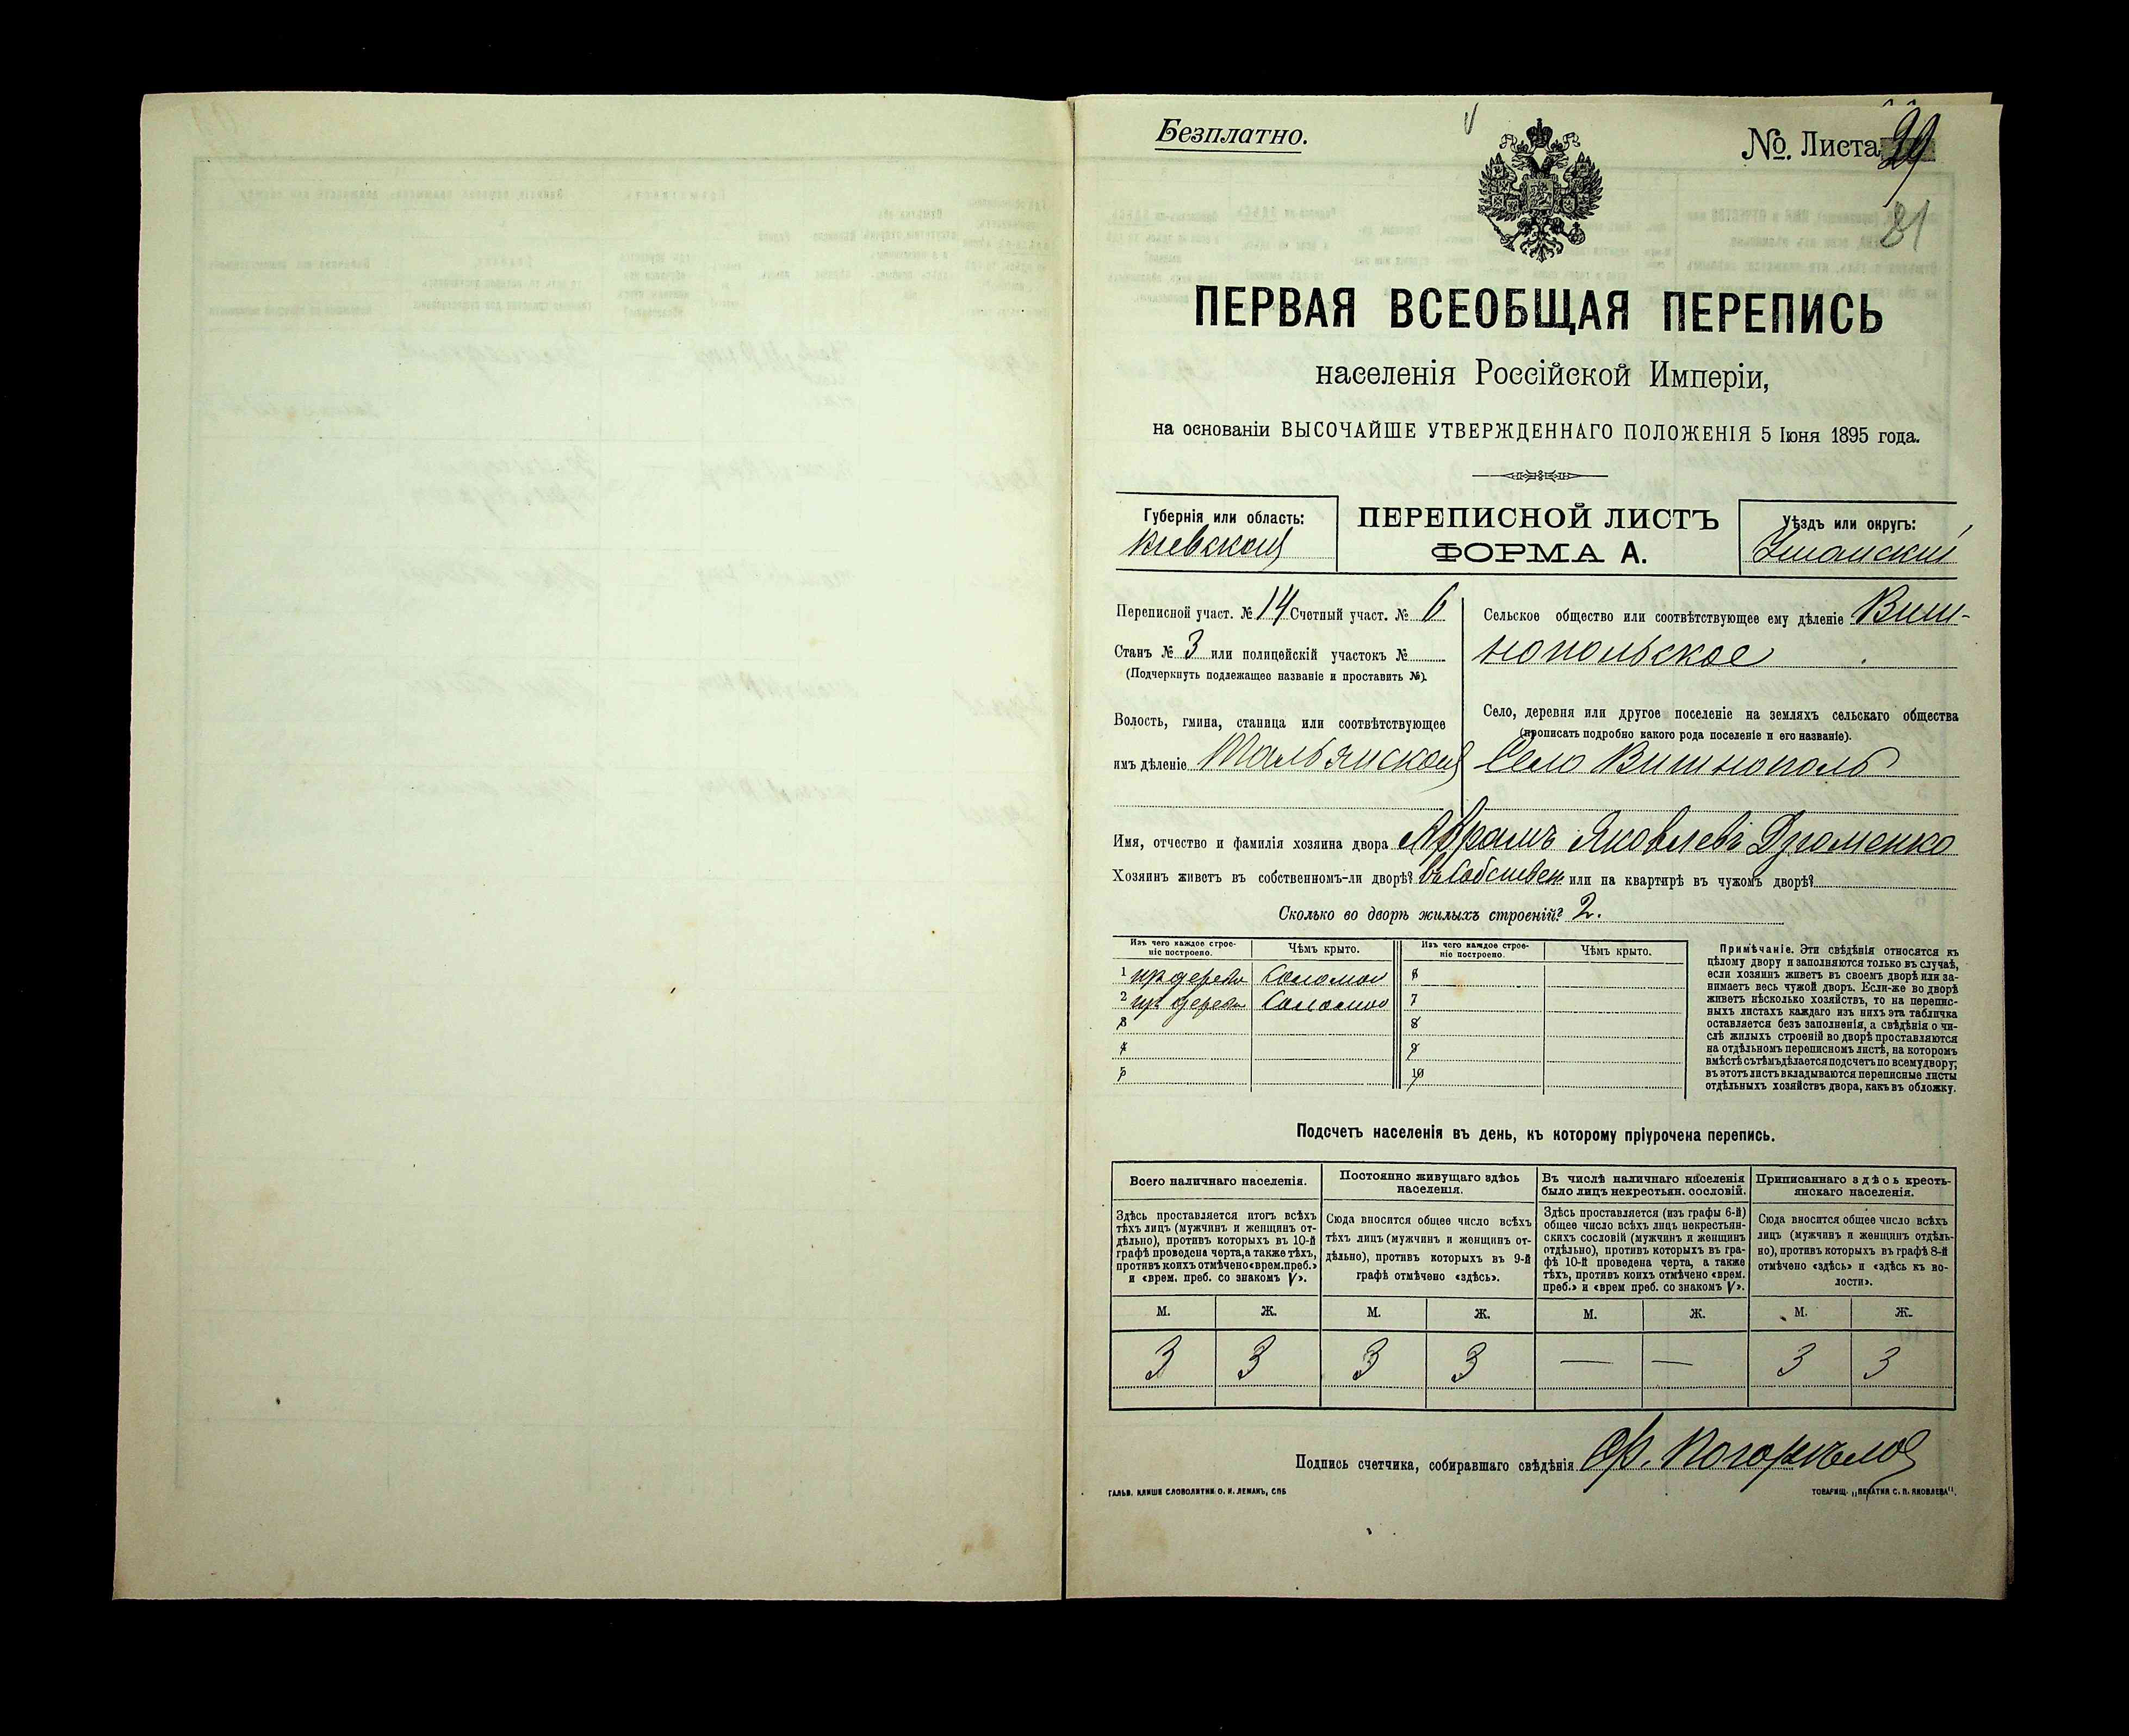 Безплатно.
№. Листа 39
81
ПЕРВАЯ ВСЕОБЩАЯ ПЕРЕПИСЬ
населенія Россійской Имперіи,
на основаніи ВЫСОЧАЙШЕ УТВЕРЖДЕННАГО ПОЛОЖЕНІЯ 5 Іюня 1895 года.
Губернія или область:
Кіевская
ПЕРЕПИСНОЙ ЛИСТЪ
ФОРМА А.
Уѣздъ или округъ:
Уманскій
Переписной участ. № 14 Счетный участ. № 6
Станъ № 3 или полицейскій участокъ №
(Подчеркнуть подлежащее названіе и проставить №).
Волость, гмина, станица или соотвѣтствующее
имъ дѣленіе Тальянская
Сельское общество или соотвѣтствующее ему дѣленіе Виш-
нопольское
Село, деревня или другое поселеніе на земляхъ сельскаго общества
(прописать подробно какого рода поселеніе и его названіе).
Село Вишнополь
Имя, отчество и фамилія хозяина двора Аврамъ Яковлевъ
Хозяинъ живетъ въ собственномъ-ли дворѣ? въ собствен. или на квартирѣ въ чужомъ дворѣ?
Сколько во дворѣ жилыхъ строеній? 2.
Изъ чего каждое строе-
ніе построено.
Чѣмъ крыто.
Изъ чего каждое строе-
ніе построено.
Чѣмъ крыто.
1 изъ дерева Соломой 6
2 изъ дерева Соломой 7
3 8
4 9
5 10
Примѣчаніе. Эти свѣдѣнія относятся къ
цѣлому двору и заполняются только въ случаѣ,
если хозяинъ живетъ въ своемъ дворѣ или за-
нимаетъ весь чужой дворъ. Если-же во дворѣ
живетъ нѣсколько хозяйствъ, то на перепис-
ныхъ листахъ каждаго изъ нихъ эта табличка
оставляется безъ заполненія, а свѣдѣнія о чи-
слѣ жилыхъ строеній во дворѣ проставляются
на отдѣльномъ переписномъ листѣ, на которомъ
вмѣстѣ съ тѣмъ дѣлается подсчетъ по всему двору;
въ этотъ листъ вкладываются переписные листы
отдѣльныхъ хозяйствъ двора, какъ въ обложку.
Подсчетъ населенія въ день, къ которому пріурочена перепись.
Всего наличнаго населенія.
Постоянно живущаго здѣсь
населенія.
Въ числѣ наличнаго населенія
было лицъ некрестьян. сословій.
Приписаннаго здѣсь кресть-
янскаго населенія.
Здѣсь проставляется итогъ всѣхъ
тѣхъ лицъ (мужчинъ и женщинъ от-
дѣльно), противъ которыхъ въ 10-й
графѣ проведена черта, а также тѣхъ,
противъ коихъ отмѣчено «врем. преб.»
и «врем. преб. со знакомъ V».
Сюда вносится общее число всѣхъ
тѣхъ лицъ (мужчинъ и женщинъ от-
дѣльно), противъ которыхъ въ 9-й
графѣ отмѣчено «здѣсь».
Здѣсь проставляется (изъ графы 6-й)
общее число всѣхъ лицъ некрестьян-
скихъ сословій (мужчинъ и женщинъ
отдѣльно), противъ которыхъ въ гра-
фѣ 10-й проведена черта, а также
тѣхъ, противъ коихъ отмѣчено «врем.
преб.» и «врем преб. со знакомъ V».
Сюда вносится общее число всѣхъ
лицъ (мужчинъ и женщинъ отдѣль-
но), противъ которыхъ въ графѣ 8-й
отмѣчено «здѣсь» и «здѣсь къ во-
лости».
М. Ж. М. Ж. М. Ж. М. Ж.
3 3 3 3 — — 3 3
Подпись счетчика, собиравшаго свѣдѣнія
ГАЛЬВ. КЛИШЕ СЛОВОЛИТНИ О. И. ЛЕМАНЪ, СПБ
ТОВАРИЩ. „ПЕЧАТНЯ С. П. ЯКОВЛЕВА".